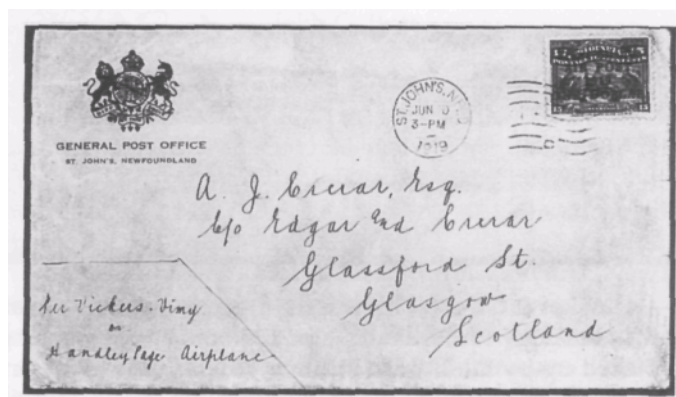 GENERAL POST OFFICE
ST. JOHN'S, NEWFOUNDLAND
ST. JOHN'S, N
JUN 0
3-PM
1919
A. J. Crerar, Esq.
c/o Edgar and Crerar
Glassford St.
Glasgow
Scotland
Per Vickers-Vimy
or
Handley Page Airplane